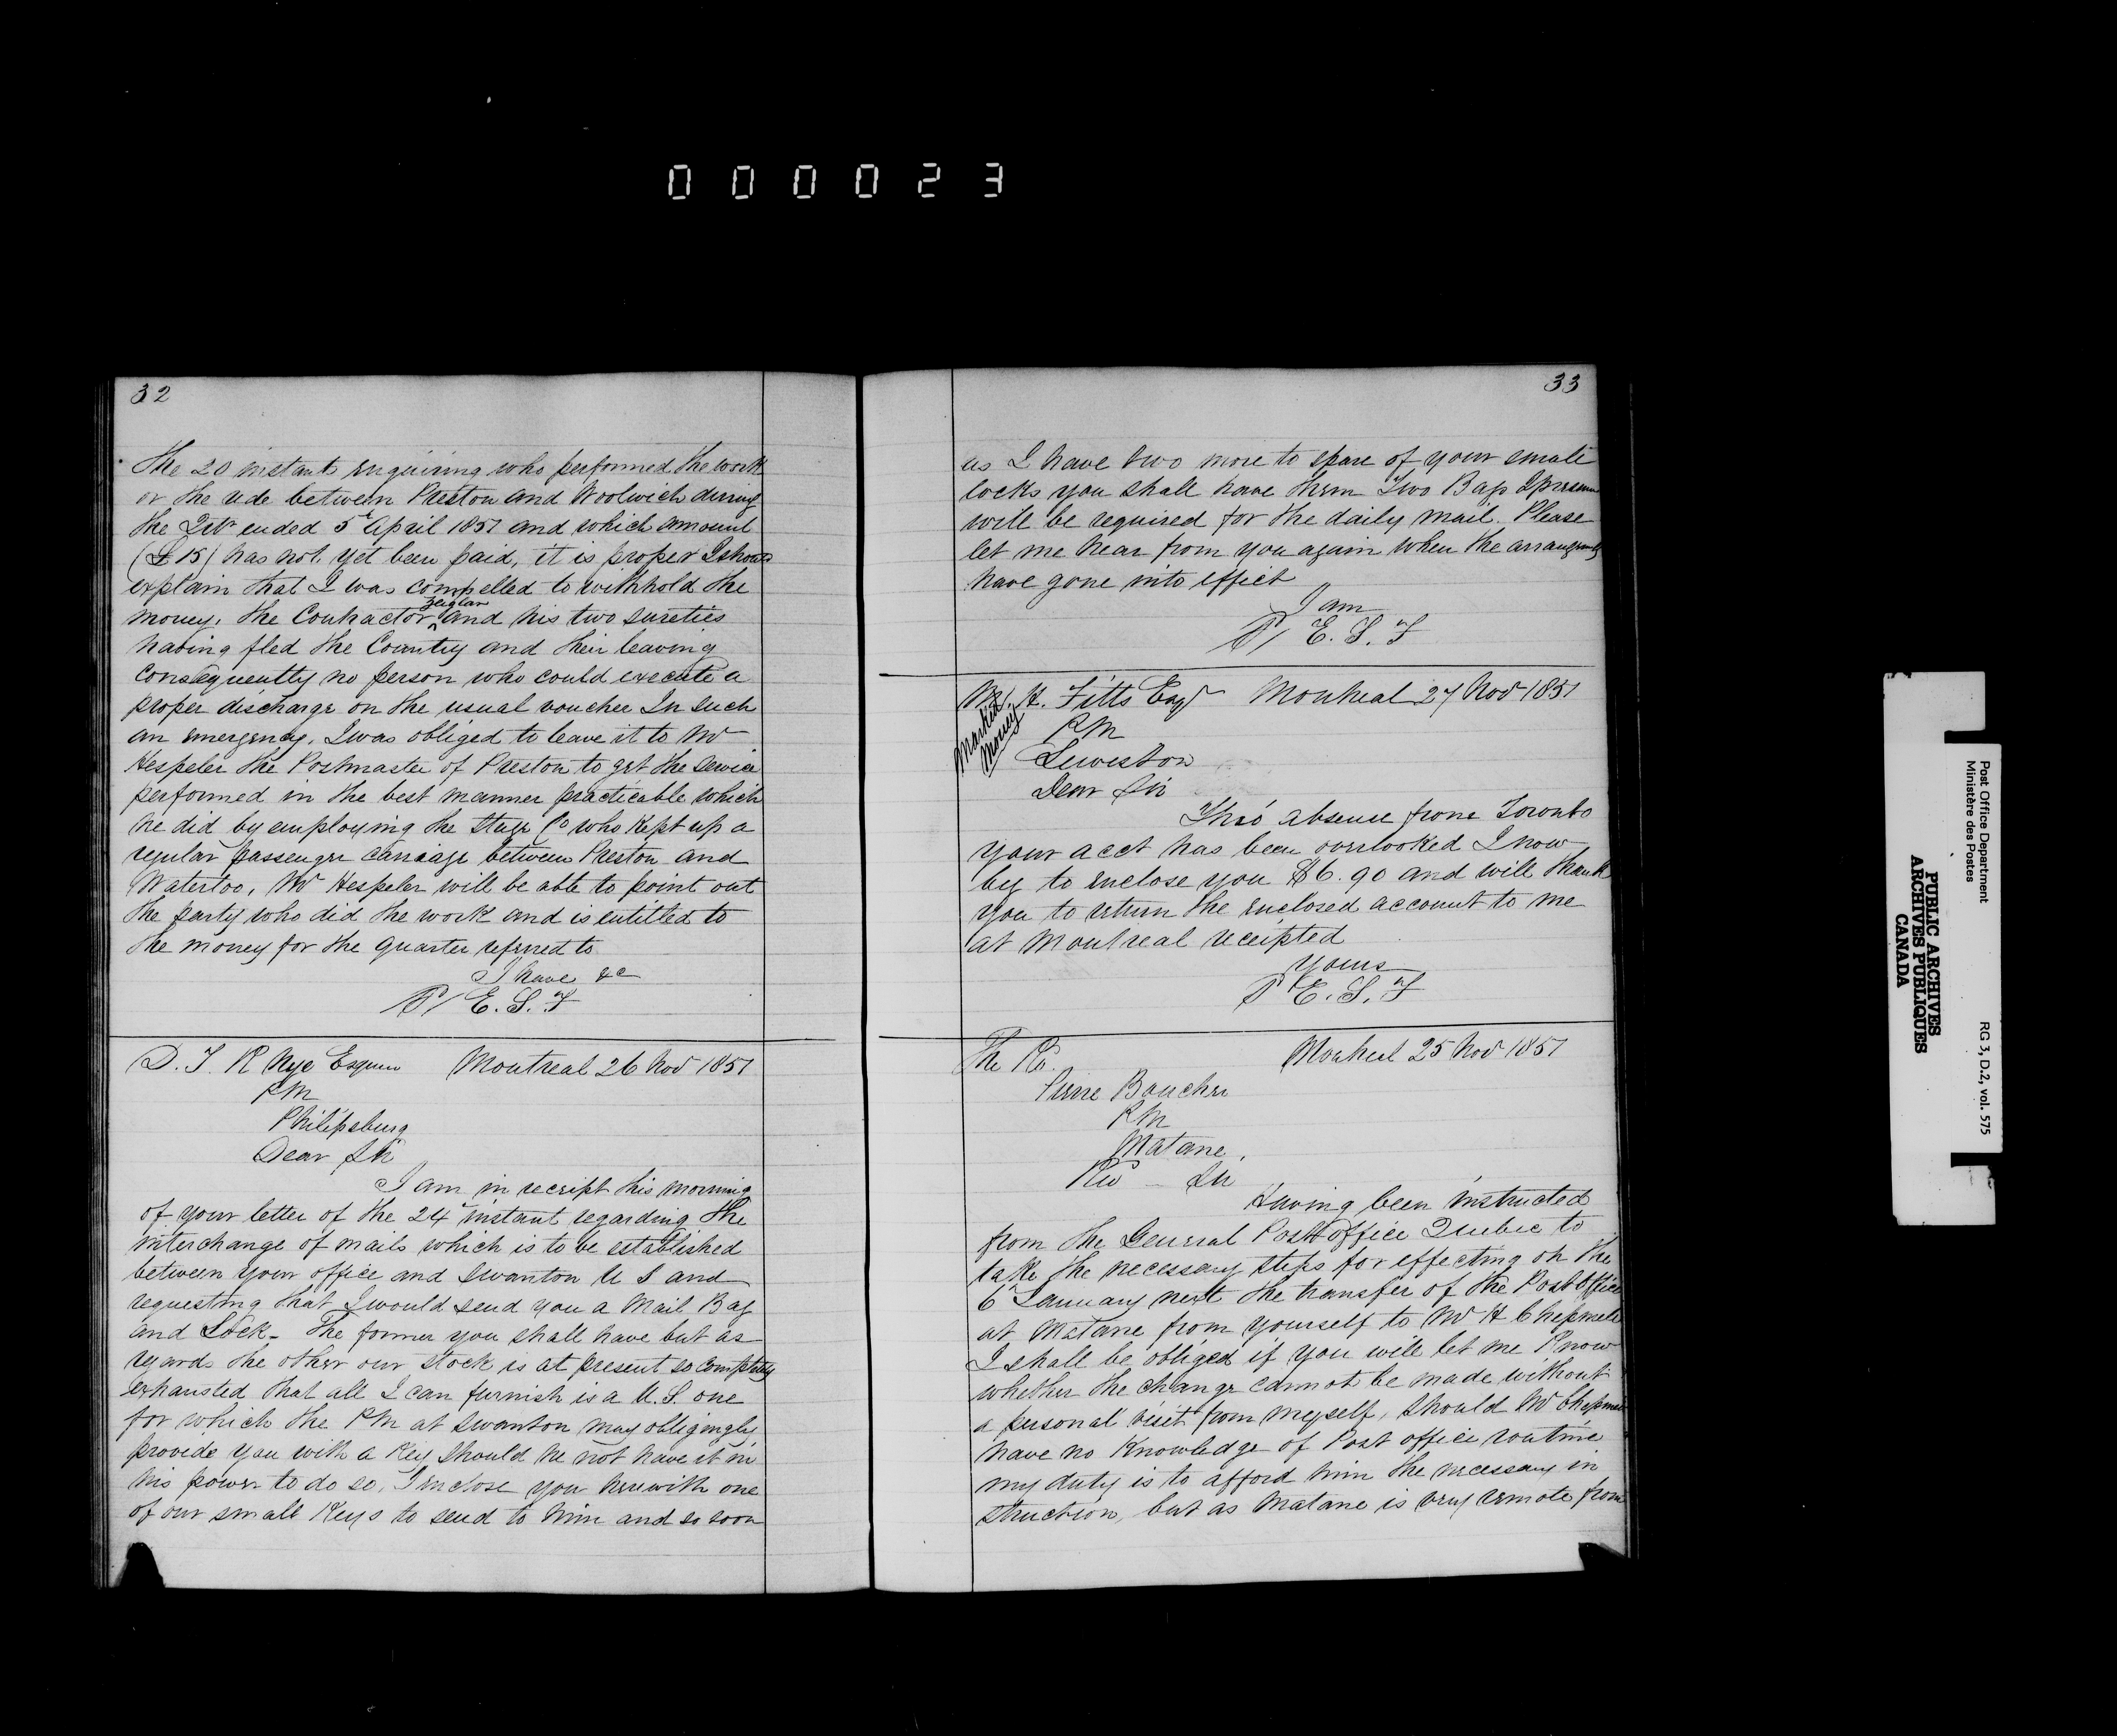 000023
32
The 20 instant enquiring who performed the work
or the ride between Preston and Woolwich during
the Qtr ended 5 April 1851 and which amount
(£15) has not yet been paid, it is proper I should
explain that I was compelled to withhold the
money, the Contractor Zeiglar and his two sureties
having fled the Country and their leaving
consequently no person who could execute a
proper discharge on the usual voucher In such
an emergency, I was obliged to leave it to Mr
Hespeler the Postmaster of Preston to get the service
performed in the best manner practicable which
he did by employing the Stage Co who kept up a
regular passenger carriage between Preston and
Waterloo, Mr Hespeler will be able to point out
the party who did the work and is entitled to
the money for the quarter referred to
I have &c
P/ E. S. F
D. T. R Nye Esquire Montreal 26 Nov 1851
PM
Philipsburg
Dear Sir
I am in receipt this morning
of your letter of the 24 instant regarding the
interchange of mails which is to be established
between your office and Swanton U S and
requesting that I would send you a Mail Bag
and Lock - The former you shall have but as
regards the other our stock is at present so completely
exhausted that all I can furnish is a U. S. one
for which the PM at Swanton may obligingly
provide you with a Key should he not have it in
his power to do so, I enclose you herewith one
of our small Keys to send to him and so soon
33
as I have two more to spare of your small
locks you shall have them Two Bags I presume
will be required for the daily mail. Please
let me hear from you again when the arrangements
have gone into effect
I am
P/ E. S. F
H. Fitts Esqr Montreal 27 Nov 1851
PM
Marked Money
Lewiston
Dear Sir
Thro' absence from Toronto
your acct has been overlooked I now
beg to enclose you $6.90 and will thank
you to return the enclosed account to me
at Montreal receipted
yours
P E. S. F
The Rev. Montreal 25 Nov 1851
Pierre Boucher
PM
Matane,
Rev - Sir
Having been instructed
from the General Post office Quebec to
take the necessary steps for effecting on the
6 January next the transfer of the Post Office
at Matane from yourself to Mr H
I shall be obliged if you will let me Know
whether the change cannot be made without
a personal visit from myself, should Mr
have no Knowledge of Post office routine
my duty is to afford him the necessary in
struction, but as Matane is very remote from
Post Office Department
Ministère des Postes
RG 3, D.2, vol. 575
PUBLIC ARCHIVES
ARCHIVES PUBLIQUES
CANADA